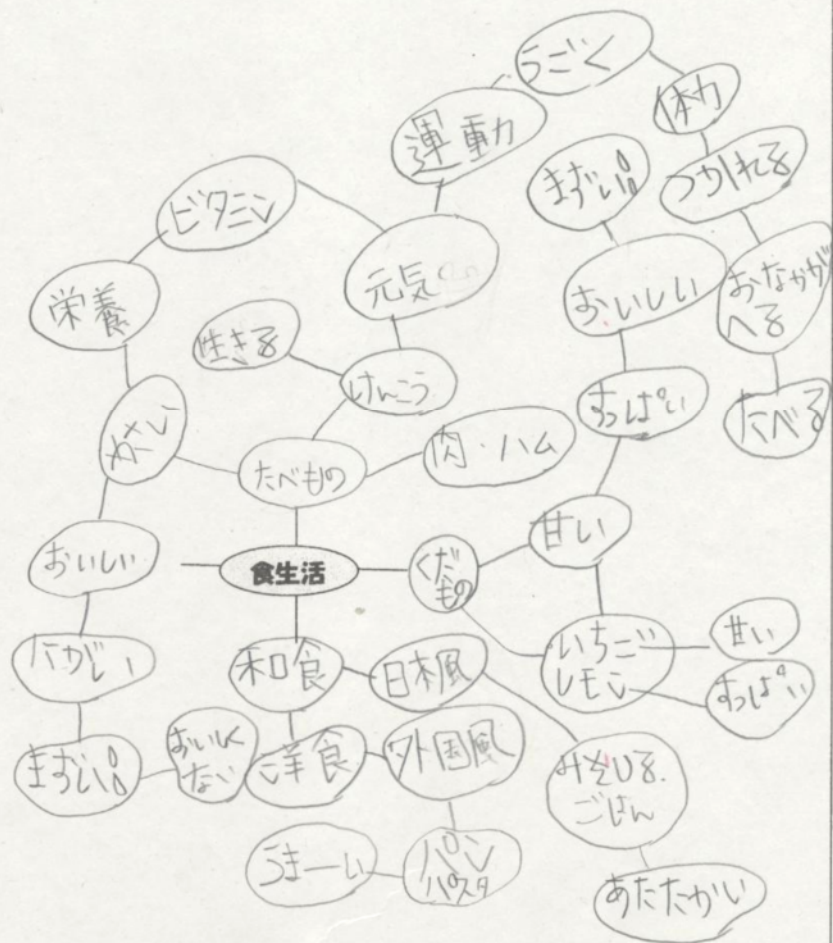 うごく
体力
運動
まずい!!
つかれる
ビタミン
元気
おいしい
おなかが
へる
栄養
生きる
けんこう
すっぱい
たべる
やさい
たべもの
肉・ハム
甘い
おいしい
食生活
くだ
もの
いちご
レモン
甘い
すっぱい
にがい
和食
日本風
まずい!!
おいしく
ない
洋食
外国風
みそしる.
ごはん
うまーい
パン
パスタ
あたたかい